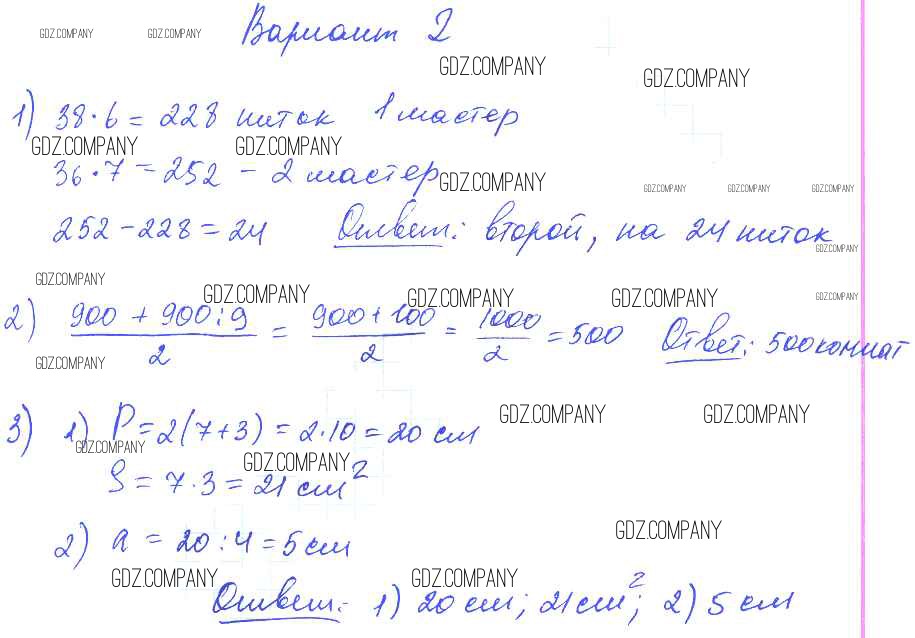 GDZ.COMPANY GDZ.COMPANY Вариант 2
GDZ.COMPANY GDZ.COMPANY
1) 38·6 = 228 ниток 1 мастер
GDZ.COMPANY GDZ.COMPANY
36·7 = 252 – 2 мастер GDZ.COMPANY GDZ.COMPANY GDZ.COMPANY GDZ.COMPANY
252 – 228 = 24 Ответ: второй, на 24 ниток
GDZ.COMPANY
GDZ.COMPANY GDZ.COMPANY GDZ.COMPANY GDZ.COMPANY GDZ.COMPANY
2) (900 + 900:9)/2 = (900+100)/2 = 1000/2 = 500 Ответ: 500 комнат
GDZ.COMPANY
GDZ.COMPANY GDZ.COMPANY
3) 1) P = 2(7+3) = 2·10 = 20 см
GDZ.COMPANY GDZ.COMPANY
S = 7·3 = 21 см²
GDZ.COMPANY
2) a = 20:4 = 5 см
GDZ.COMPANY GDZ.COMPANY
Ответ: 1) 20 см; 21 см²; 2) 5 см